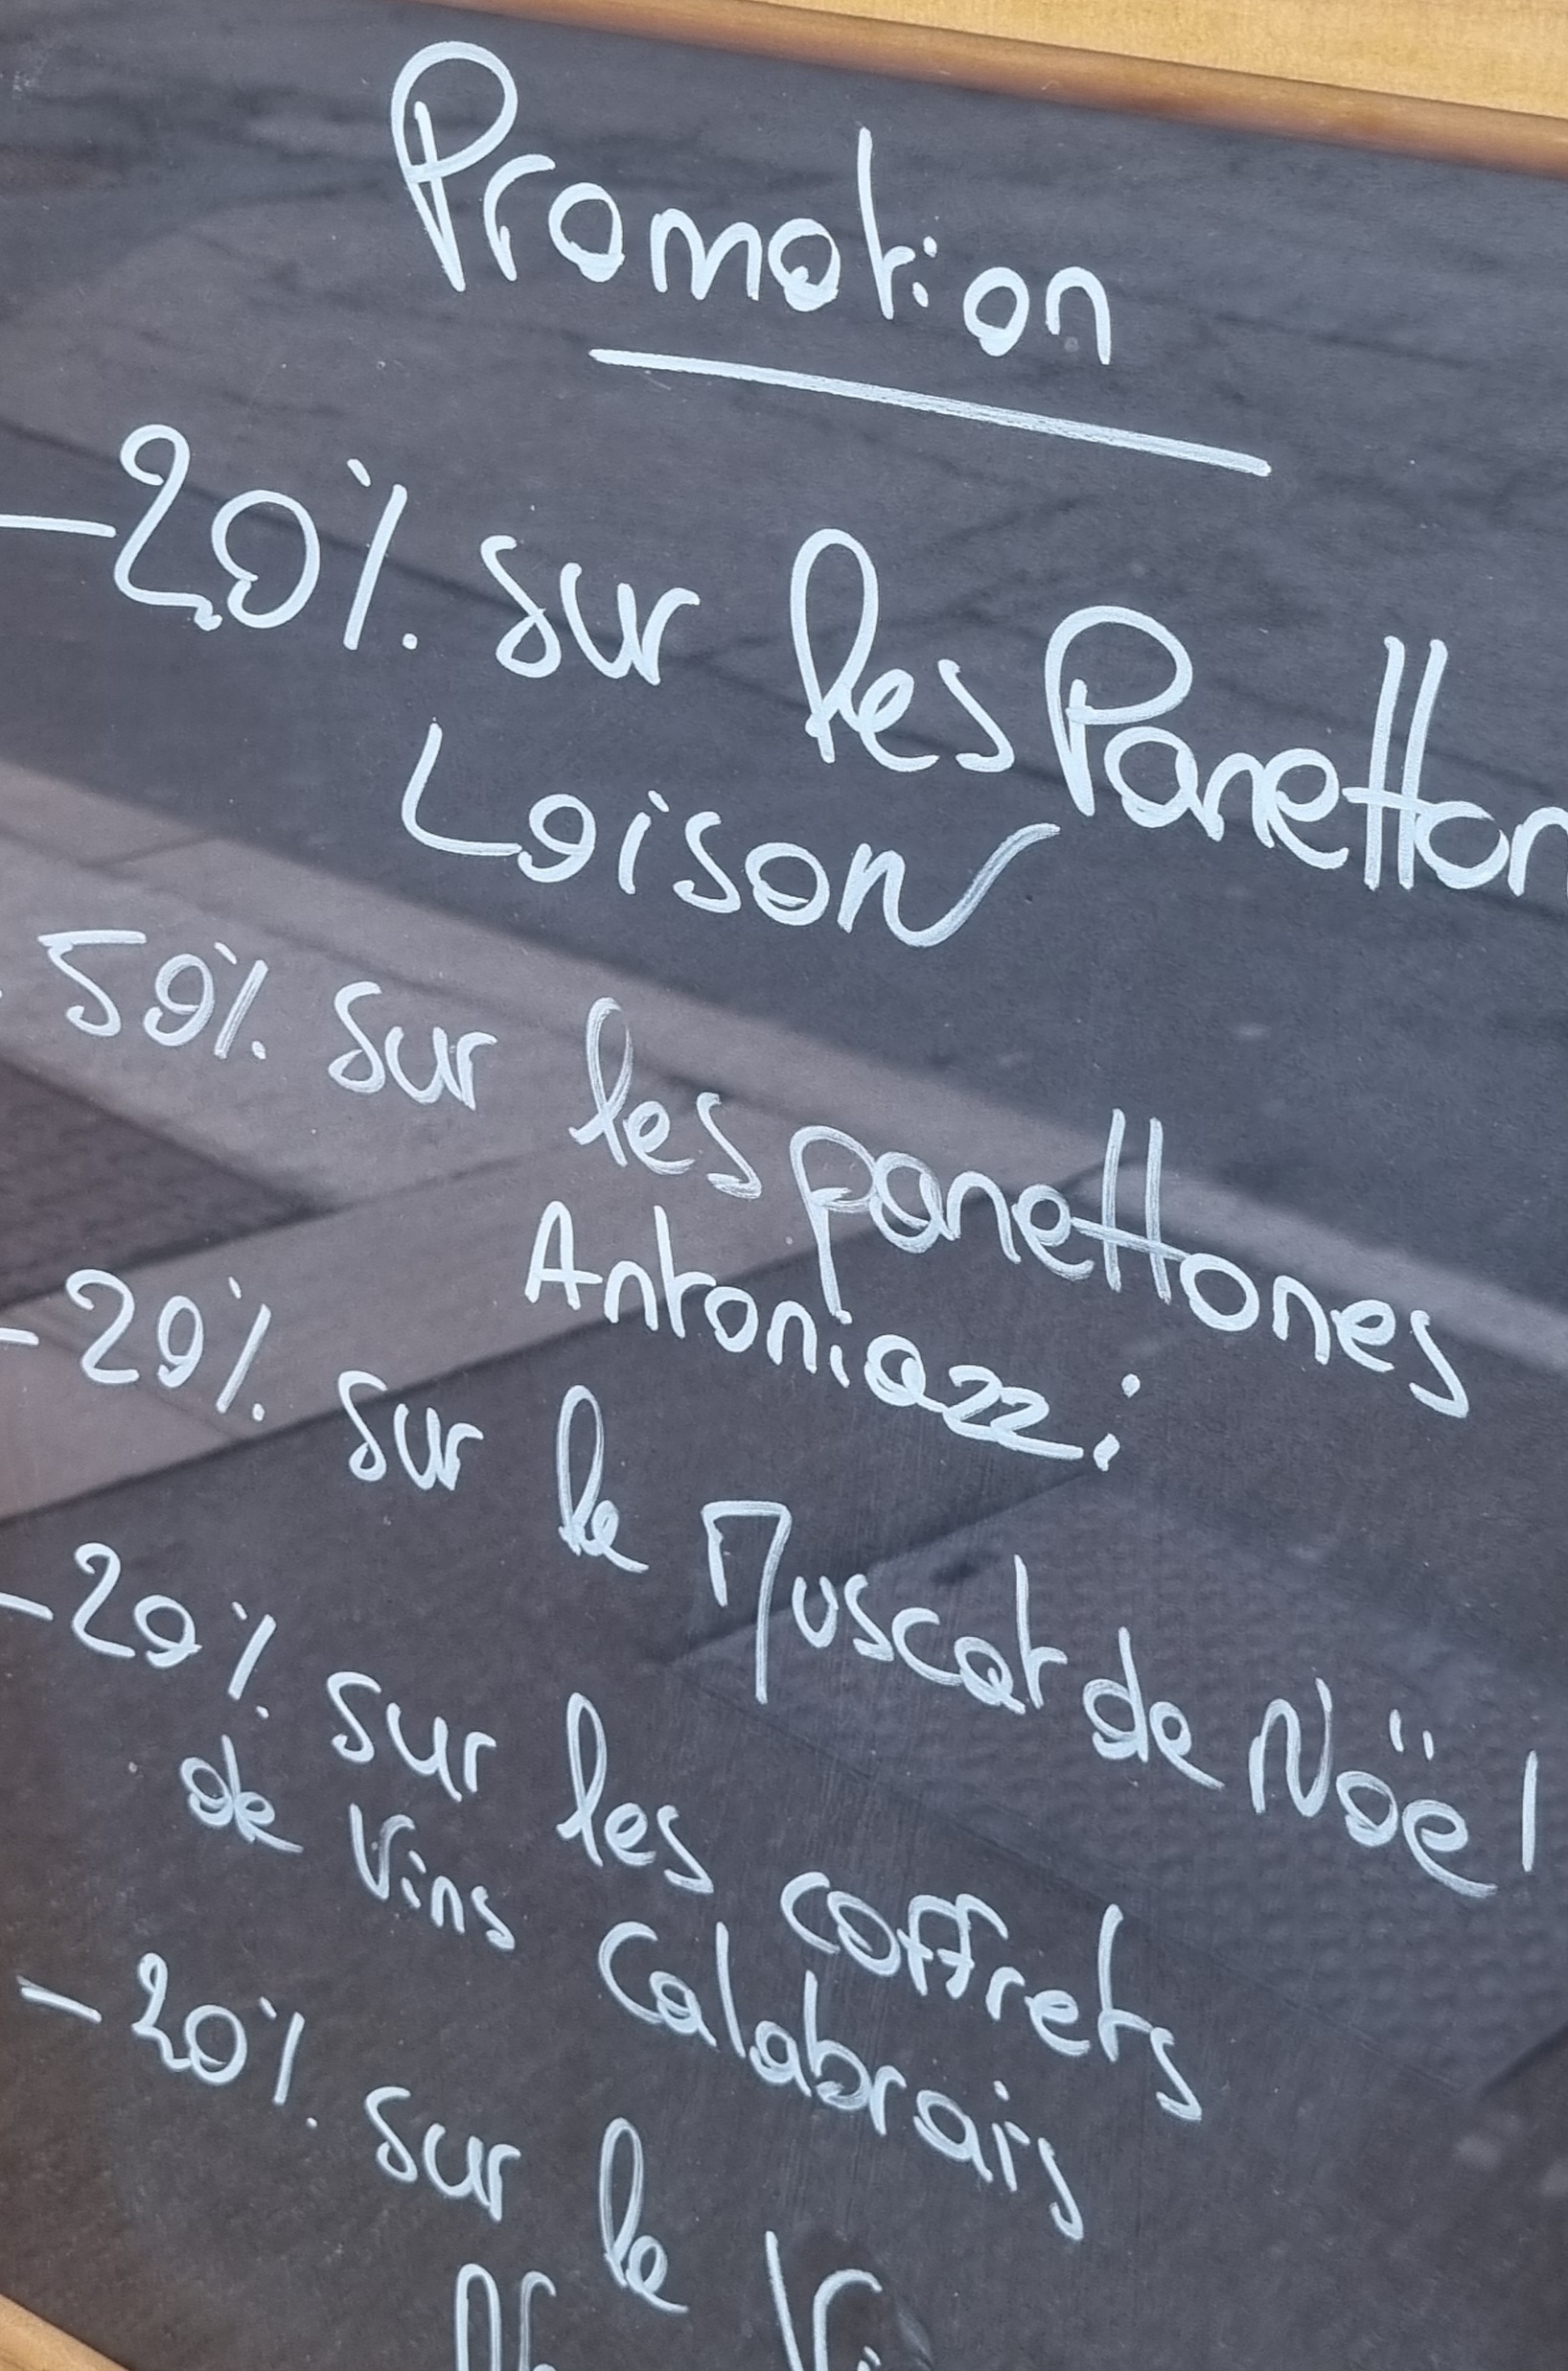 Promotion
-20% sur les Panetton
Loison
- 50% sur les panettones
Antoniazzi
- 20% sur le Muscat de Noël
-20% sur les coffrets
de Vins Calabrais
-20% sur le